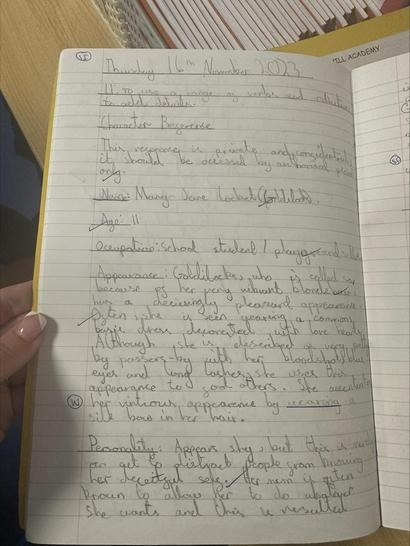 ILL ACADEMY
Thursday 16th November 2023
LI: To use a range of verbs and adjectives
to add details.
Character Reference
This response is private and confidential,
it should be accessed by authorised
only.
Name: Mary-Jane Locket (Goldilocks).
Age: 11
Occupation: School student /
Appearance: Goldilocks, who is called
because of her very vibrant blonde
has a decievingly pleasant appearance
Often, she is seen wearing a common,
dress decorated with love hearts
Although she is described as very
by passers-by with her bloodshot blue
eyes and long lashes, she uses this
appearance to others. She
her appearance by wearing a
silk bow in her hair.
Personality: Appears shy, but this is
to people from knowing
her deceitful self. Her mum is often
known to allow her to do whatever
she wants and this is resulted